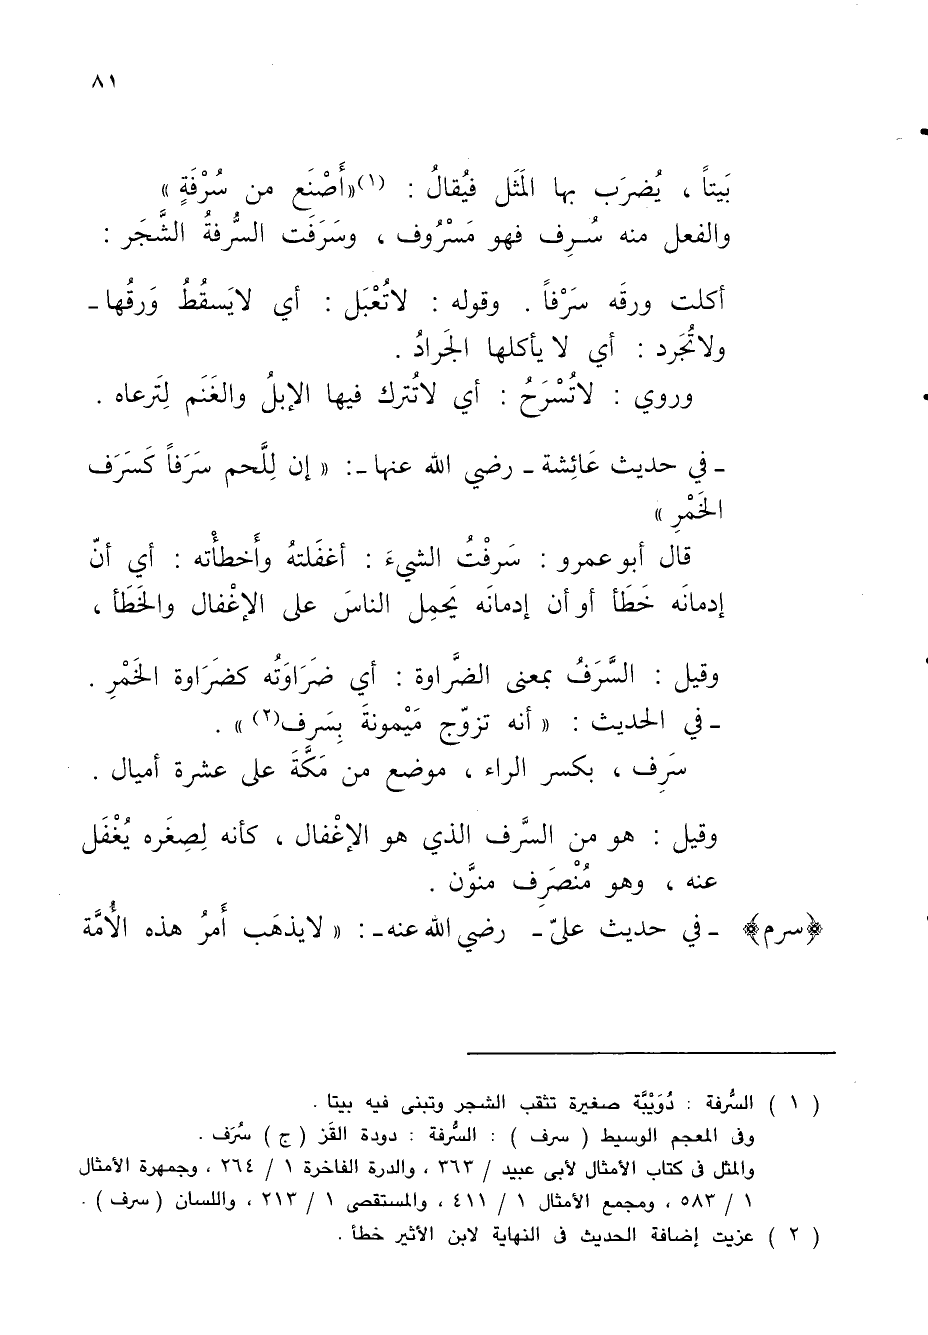 ٨١
بَيتاً ، يُضرَب بها المَثَل فيُقالُ : (١)«أَصْنَع من سُرْفَةٍ »
والفعل منه سُرِف فهو مَسْرُوف ، وسَرَفَت السُّرفةُ الشَّجَر :
أكلت ورقَه سَرْفاً . وقوله : لاتُعْبَل : أي لايَسقُطُ وَرقُها ـ
ولاتُجَرد : أي لا يأكلها الجَرادُ .
وروي : لاتُسْرَحُ : أي لاتُترك فيها الإبلُ والغَنَم لِتَرعاه .
ـ في حديث عَائِشة ـ رضي الله عنها ـ: « إن لِلَّحم سَرَفاً كَسَرَف
الخَمْرِ »
قال أبو عمرو : سَرفْتُ الشيءَ : أغفَلتهُ وأَخطأْته : أي أنّ
إدمانَه خَطَأ أو أن إدمانَه يَحمِل الناسَ على الإغْفال والخَطَأ ،
وقيل : السَّرَفُ بمعنى الضَّراوة : أي ضَرَاوَتُه كضَرَاوة الخَمْرِ .
ـ في الحديث : « أنه تزوّج مَيْمونةَ بِسَرف(٢) » .
سَرِف ، بكسر الراء ، موضع من مَكَّةَ على عشرة أميال .
وقيل : هو من السَّرف الذي هو الإغْفال ، كأنه لِصِغَره يُغْفَل
عنه ، وهو مُنْصَرِف منوَّن .
﴿سرم﴾ ـ في حديث عليّ ـ رضي الله عنه ـ: « لايذهَب أَمرُ هذه الأُمَّة
( ١ ) السُّرفة : دُوَيْبَّة صغيرة تثقب الشجر وتبنى فيه بيتا .
وفى المعجم الوسيط ( سرف ) : السُّرفة : دودة القَز ( ج ) سُرَف .
والمثل فى كتاب الأمثال لأبى عبيد / ٣٦٣ ، والدرة الفاخرة ١ / ٢٦٤ ، وجمهرة الأمثال
١ / ٥٨٣ ، ومجمع الأمثال ١ / ٤١١ ، والمستقصى ١ / ٢١٣ ، واللسان ( سرف ) .
( ٢ ) عزيت إضافة الحديث فى النهاية لابن الأثير خطأ .